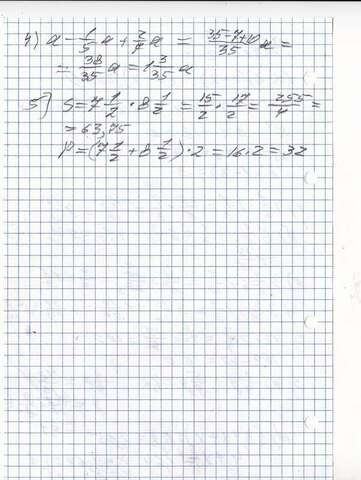 4) a - 1/5 a + 2/7 a = (35-7+10)/35 a =
= 38/35 a = 1 3/35 a
5) S = 7 1/2 · 8 1/2 = 15/2 · 17/2 = 255/4 =
= 63,75
P = (7 1/2 + 8 1/2) · 2 = 16 · 2 = 32